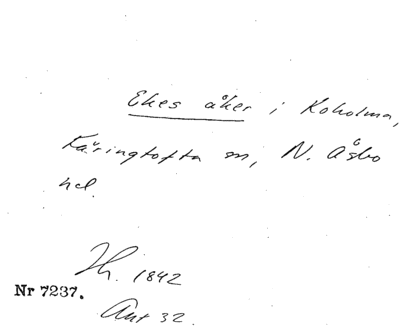 Ekes åker i Koholma,
Käringtofta sn, N. Åsbo
hd.
Th. 1842
Nr 7237.
Ant 32.